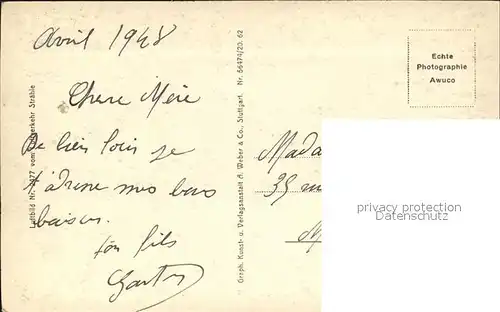 Avril 1948
Chere Mère
De bien loin je
t'adresse mes bons
baisers.
ton fils
Gaston
Luftbild Nr. 7377 vom Luftverkehr Strähle
Graph. Kunst- u. Verlagsanstalt A. Weber & Co., Stuttgart. Nr. 66474/23. 62
Echte
Photographie
Awuco
Mada
35
privacy protection
Datenschutz